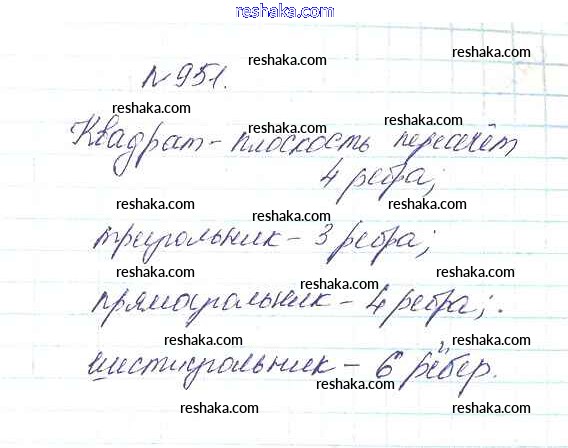 reshaka.com
reshaka.com
reshaka.com
№951.
reshaka.com
reshaka.com
reshaka.com
Квадрат - плоскость пересечёт
4 ребра;
reshaka.com
reshaka.com
треугольник - 3 ребра;
reshaka.com
reshaka.com
reshaka.com
прямоугольник - 4 ребра;
reshaka.com
reshaka.com
шестиугольник - 6 рёбер.
reshaka.com
reshaka.com
reshaka.com